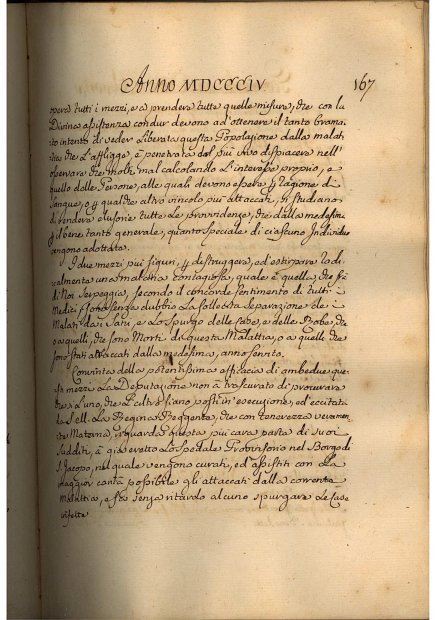 Anno MDCCCIV 167
opera tutti i mezzi, e a prendere tutte quelle misure, che con la
Divina assistenza condur devono ad ottenere il tanto brama-
to intento di veder Liberata questa Popolazione dalla malat
tia che L'affligge è penetrata dal più vivo dispiacere nell'
osservare che molti mal calcolando L'interesse proprio, e
quello delle Persone, alle quali devono essere p ragione di
Sangue, o p qualche altro vincolo più attaccati, si studiano
di rendere elusorie tutte le providenze, che dalla medesima
p il bene tanto generale, quanto speciale di ciascuno Individuo
vengono adottate.
I due mezzi più sicuri, p distruggere, ed estirpare radi-
calmente una malattia contagiosa, quale è quella che fra
di Noi serpeggia, secondo il concorde sentimento di tutti i
Medici sono senza dubbio La sollecita separazione dei
Malati dai Sani, e Lo Spurgo delle Case, e delle Robe, che
o a quelli, che sono Morti di questa Malattia, o a quelli che
sono stati attaccati dalla medesima, anno servito.
Convinta della potentissima efficacia di ambedue que-
sti mezzi La Deputazione non à trascurato di procurare
che L'uno, che L'altro siano posti in esecuzione, ed eccitata
da S. M. La Regina Reggente, che con tenerezza veramen-
te Materna, riguarda questa più cara parte di suoi
Sudditi, à già eretto Lo Spedale Provisorio nel Borgo di
S. Jacopo, nel quale vengono curati, ed assistiti con La
maggior carità possibile gli attaccati dalla corrente
Malattia, e fa senza ritardo alcuno spurgare Le Case
infette